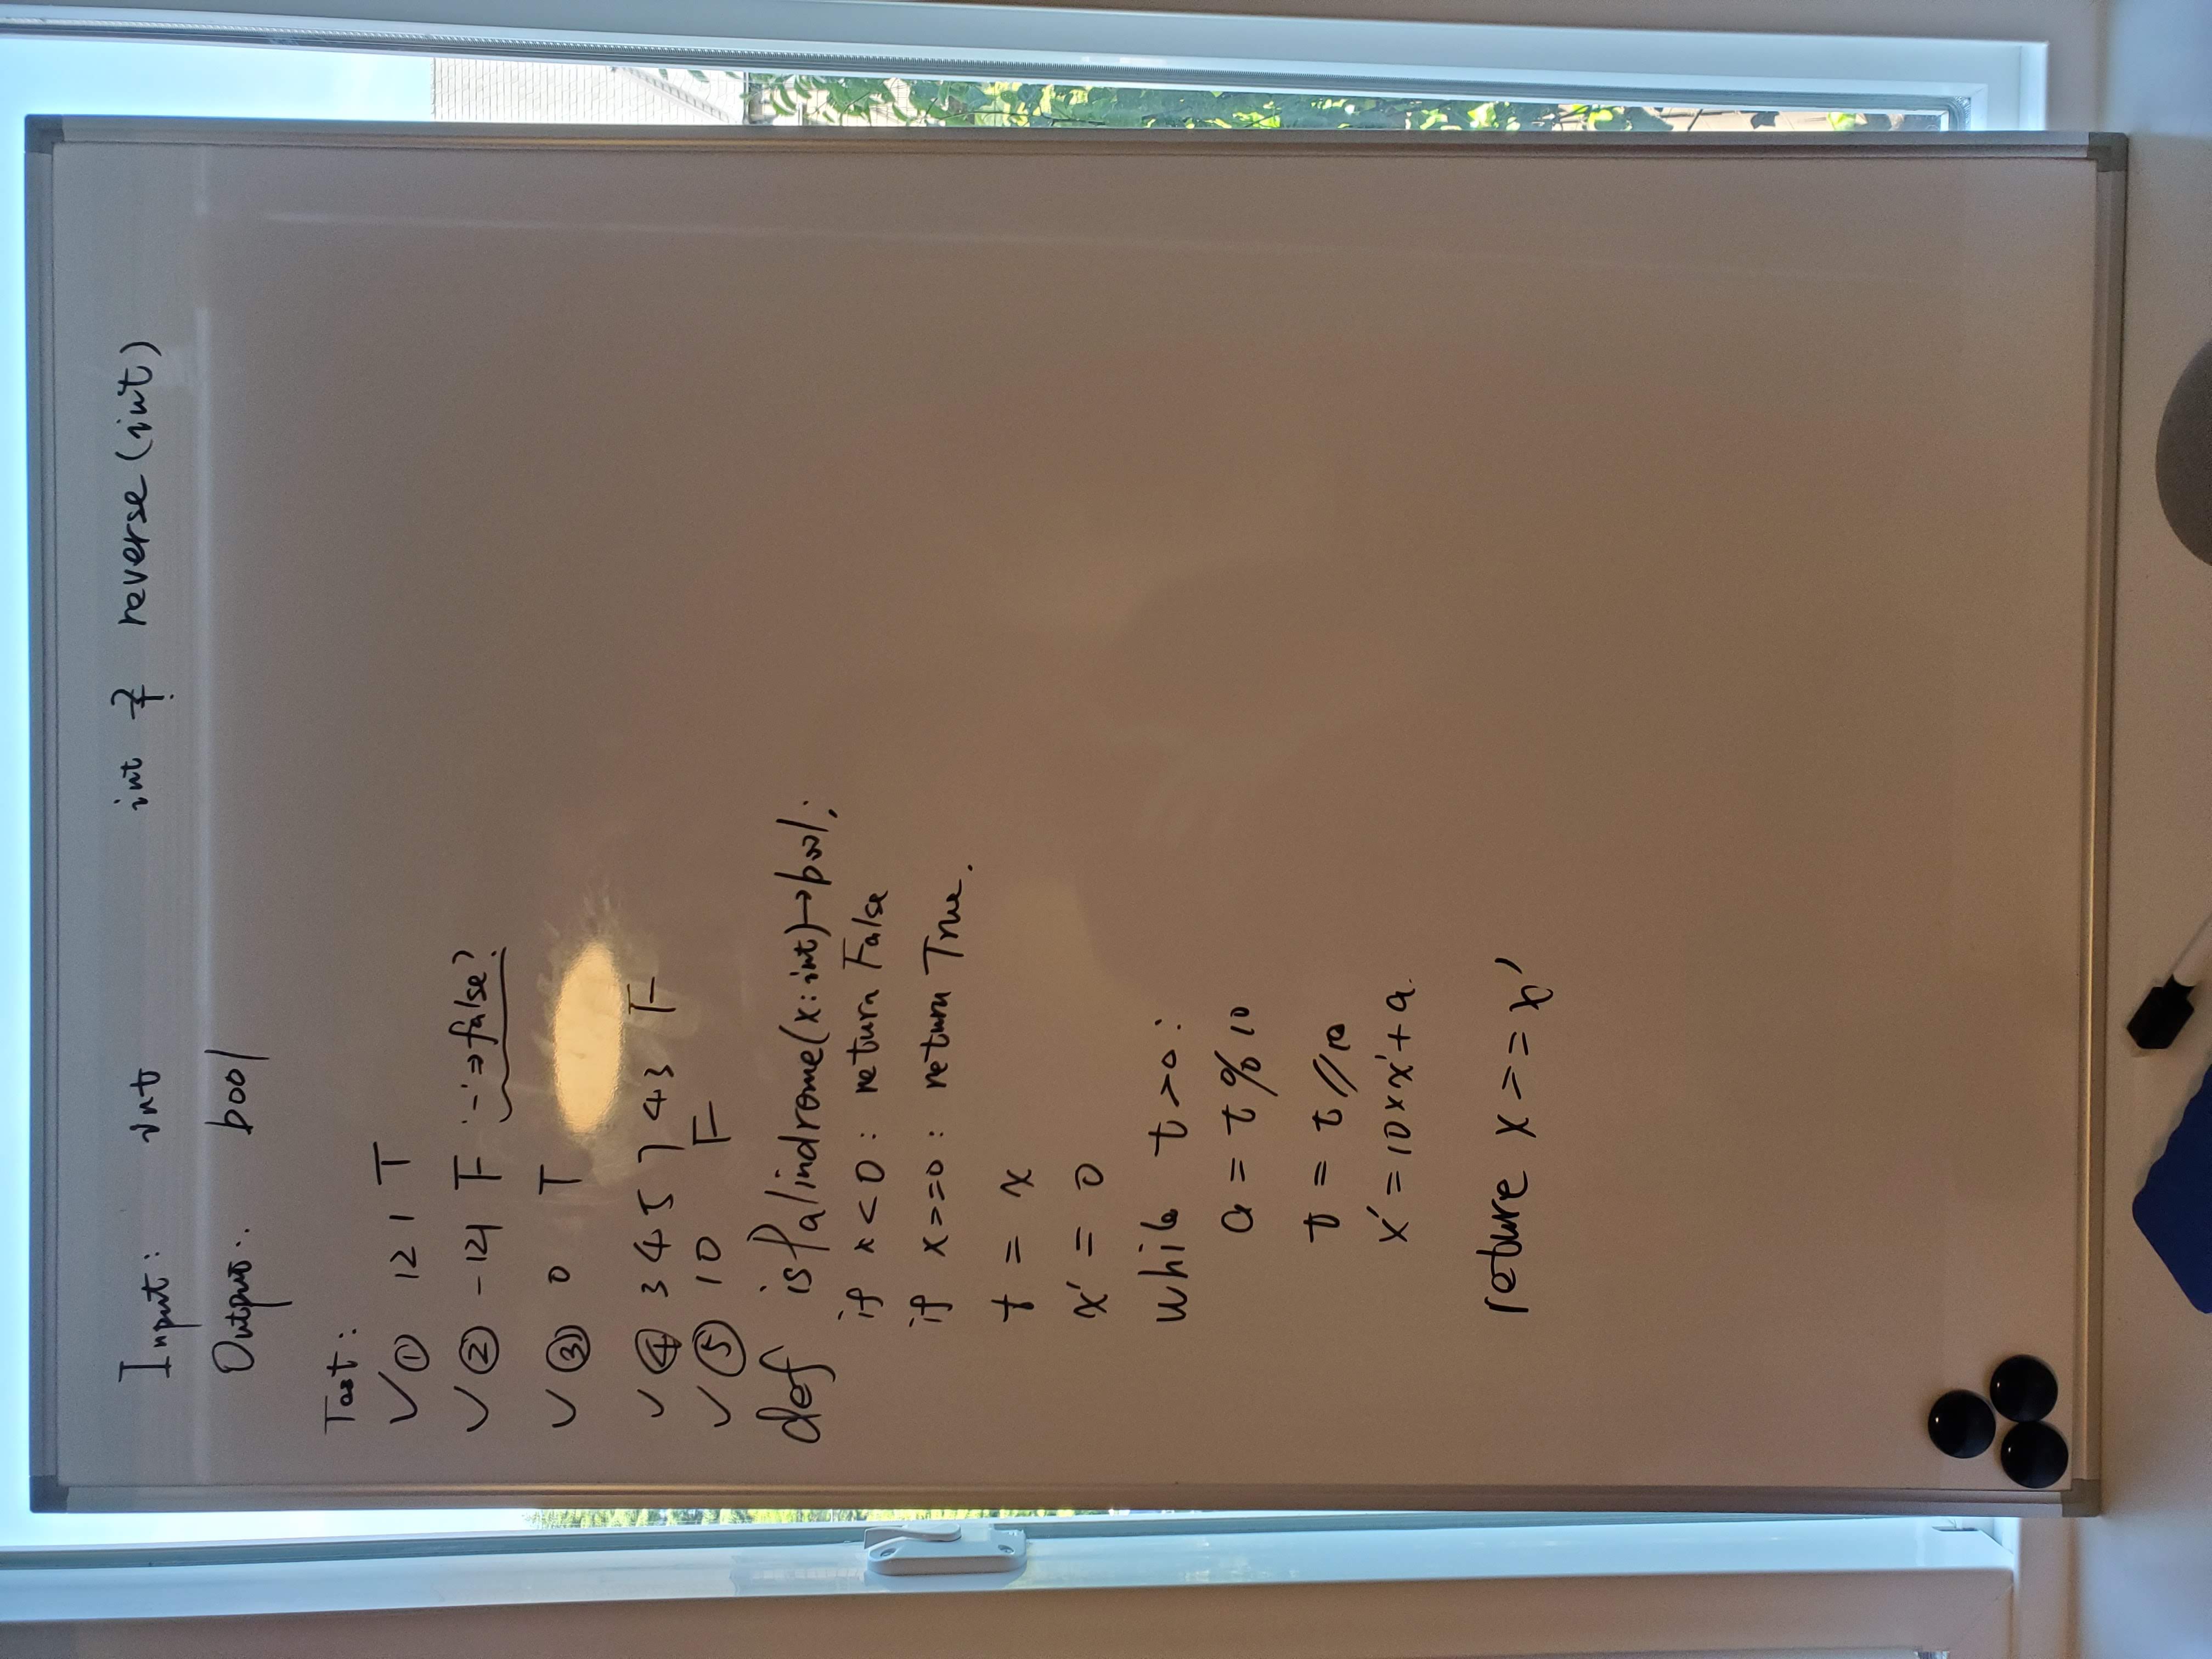 Input: int
int ≟ reverse(int)
Output: bool
Test:
✓ ① 121 T
✓ ② -121 F '-'⇒false?
✓ ③ 0 T
✓ ④ 345743 F
✓ ⑤ 10 F
def isPalindrome(x: int)→bool:
if x<0: return False
if x==0: return True.
t = x
x' = 0
while t>0:
a = t%10
t = t//10
x' = 10×x'+a.
return x==x'